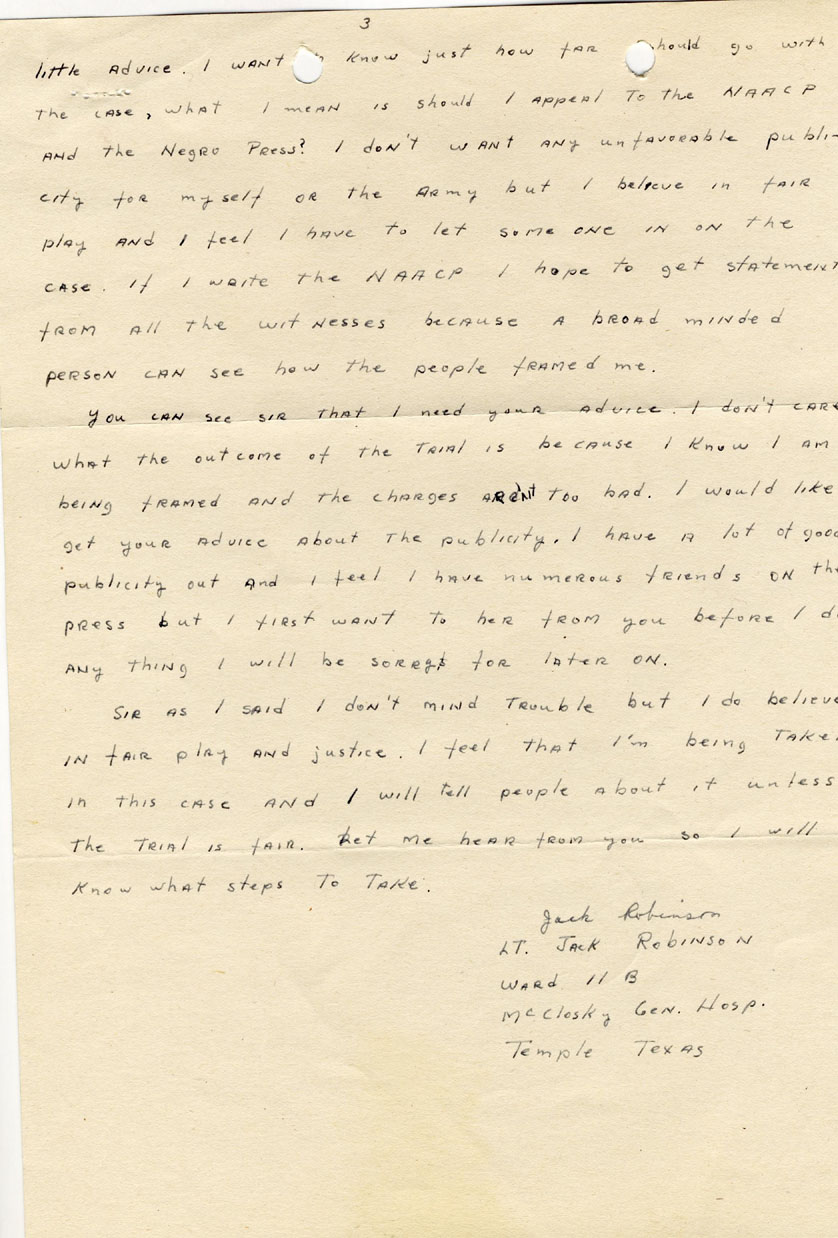 3
little Advice. I want know just how far should go with
the case, what I mean is should I appeal to the NAACP
and the Negro Press? I don't want any unfavorable publi-
city for myself or the Army but I believe in fair
play and I feel I have to let some one in on the
case. If I write the NAACP I hope to get statement
from all the witnesses because a broad minded
person can see how the people framed me.
You can see sir that I need your advice. I don't care
what the outcome of the trial is because I know I am
being framed and the charges aren't too bad. I would like
get your advice about the publicity. I have a lot of good
publicity out and I feel I have numerous friends on the
press but I first want to her from you before I d
any thing I will be sorry for later on.
Sir as I said I don't mind trouble but I do believe
in fair play and justice. I feel that I'm being take
in this case and I will tell people about it unless
the trial is fair. Let me hear from you so I will
know what steps to take.
Jack Robinson
Lt. Jack Robinson
Ward 11 B
McClosky Gen. Hosp.
Temple Texas